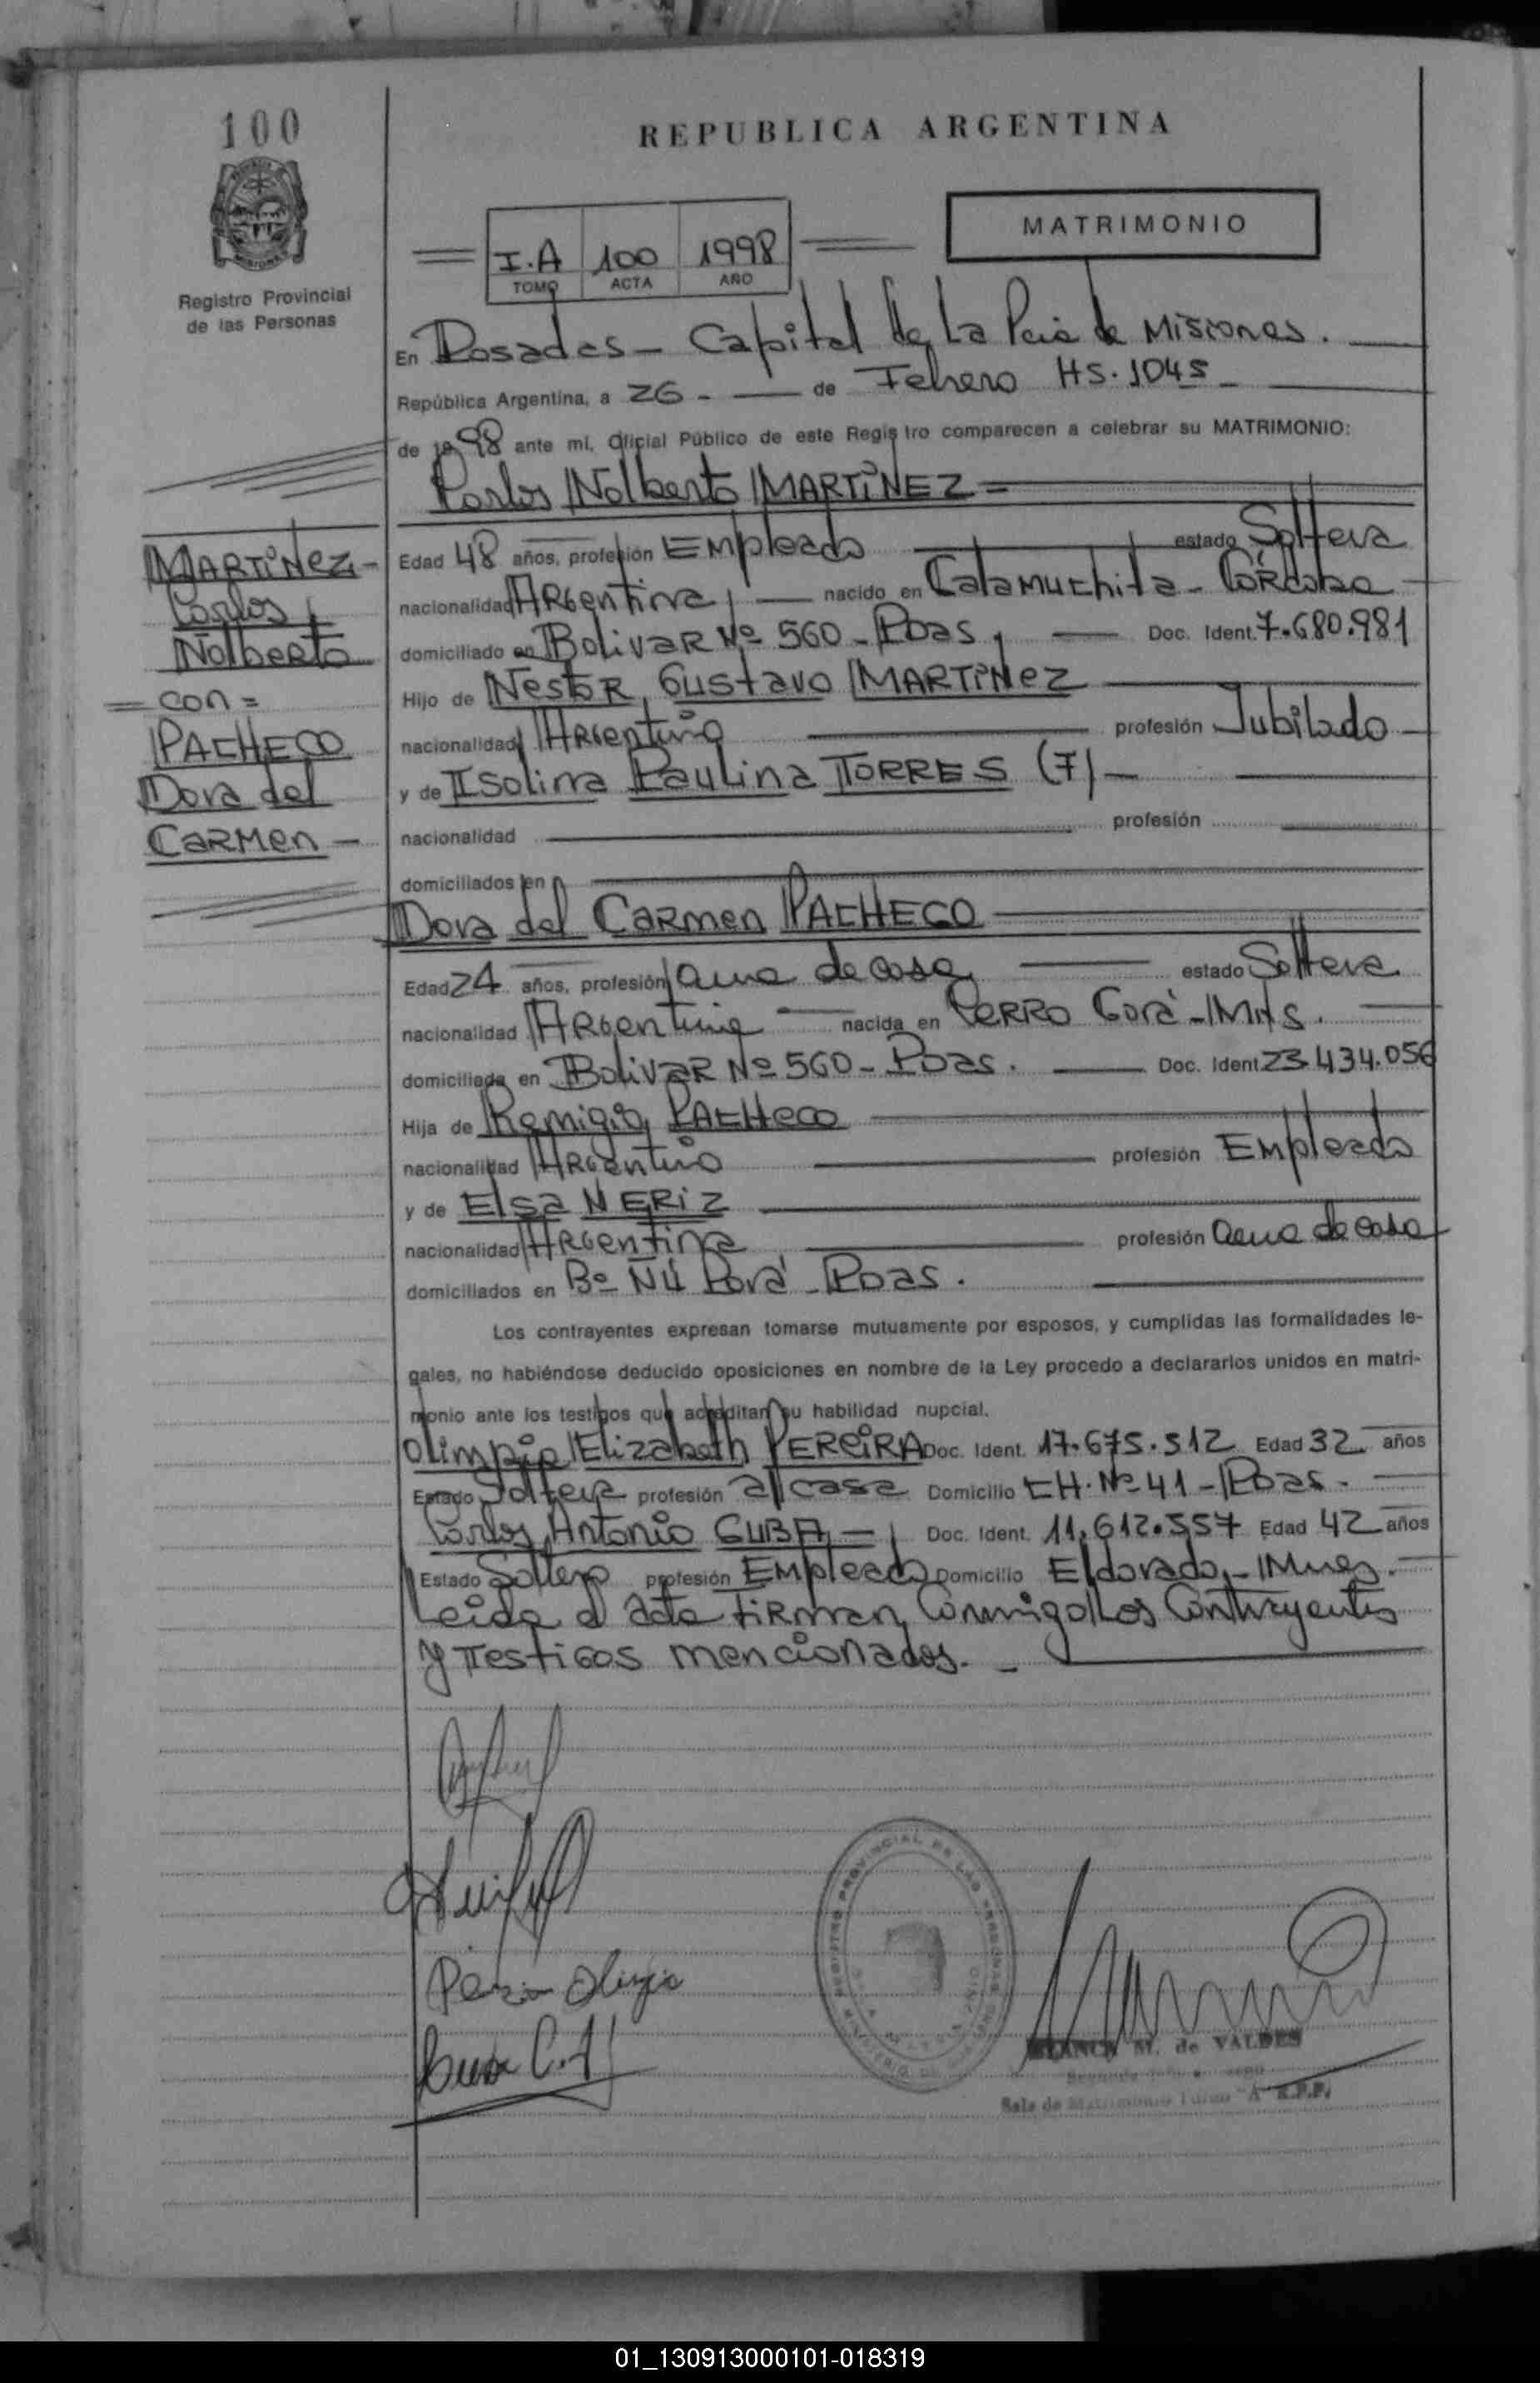 100
REPUBLICA ARGENTINA
MATRIMONIO
I.A 100 1998
TOMO ACTA AÑO
Registro Provincial
de las Personas
En Posadas - Capital de La Pcia de Misiones.
República Argentina, a 26 - de Febrero HS. 1045 -
de 1998 ante mí, Oficial Público de este Registro comparecen a celebrar su MATRIMONIO:
Carlos Nolberto MARTíNEZ =
MARTíNez -
Carlos
Nolberto
= con =
PACHECO
Dora del
Carmen -
Edad 48 años, profesión Empleado estado Soltero
nacionalidad Argentina, nacido en Calamuchita - Córdoba
domiciliado en Bolivar Nº 560 - Pdas, Doc. Ident. 7.680.981
Hijo de Nestor Gustavo MARTíNez
nacionalidad Argentino profesión Jubilado
y de Isolina Paulina TORRES (F) -
nacionalidad profesión
domiciliados en
Dora del Carmen PACHECO
Edad 24 años, profesión ama de casa estado Soltera
nacionalidad Argentina nacida en Cerro Corá - Mnes.
domiciliada en Bolivar Nº 560 - Pdas. Doc. Ident 23.434.056
Hija de Remigio PACHECO
nacionalidad Argentino profesión Empleado
y de Elsa NERiZ
nacionalidad Argentina profesión ama de casa
domiciliados en Bº Ñú Porá - Pdas.
Los contrayentes expresan tomarse mutuamente por esposos, y cumplidas las formalidades le-
gales, no habiéndose deducido oposiciones en nombre de la Ley procedo a declararlos unidos en matri-
monio ante los testigos que acreditan su habilidad nupcial.
Olimpia Elizabeth PEREiRA Doc. Ident. 17.675.512 Edad 32 años
Estado Soltera profesión a/casa Domicilio CH. Nº 41 - Pdas.
Carlos Antonio CUBA - Doc. Ident. 11.612.557 Edad 42 años
Estado Soltero profesión Empleado Domicilio Eldorado, - Mnes.
Leida el acta firman conmigo los Contrayentes
y Testigos mencionados. -
REGISTRO PROVINCIAL DE LAS PERSONAS
M. de VALDES
Sala de Matrimonio Turno "A" R.P.P.
01_130913000101-018319